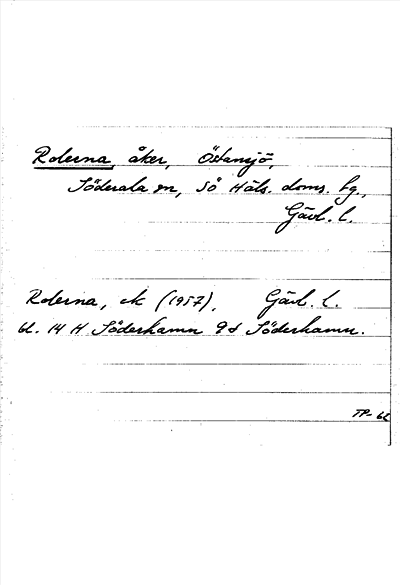 Rolerna, åker, Östansjö,
Söderala sn, Sö Häls. doms. hg.,
Gävl. l.
Rolerna, ek (1957), Gävl. l.
bl. 14 H Söderhamn 9d Söderhamn.
TP-62